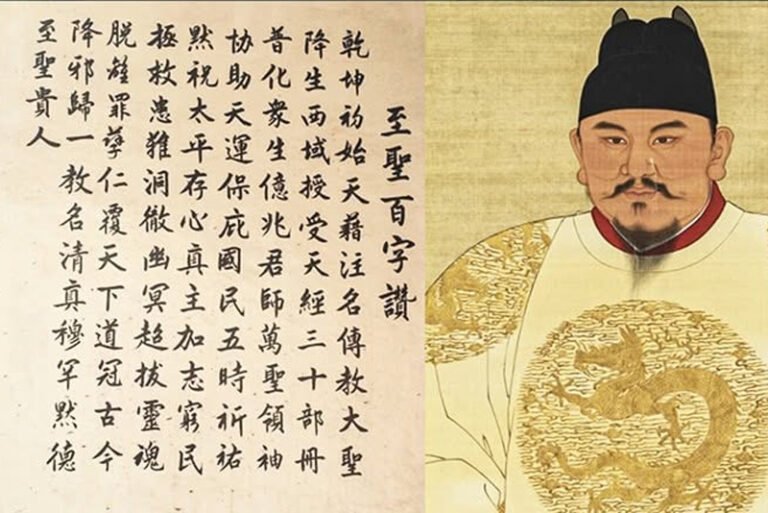 至聖百字讚
乾坤初始天藉注名傳教大聖
降生西域授受天經三十部冊
普化衆生億兆君師萬聖領袖
協助天運保庇國民五時祈祐
默祝太平存心真主加志窮民
拯救患難洞徹幽冥超拔靈魂
脫離罪孽仁覆天下道冠古今
降邪歸一教名清真穆罕默德
至聖貴人